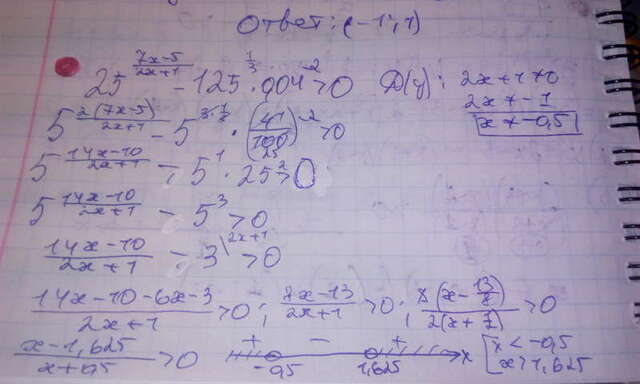 Ответ: (-1; 1)
25^((7x-5)/(2x+1)) - 125^(1/3) · 0,04^(-2) > 0   D(y): 2x+1≠0
2x≠-1
x≠-0,5
5^(2(7x-5)/(2x+1)) - 5^(3·1/3) · (4 1/100 25)^(-2) > 0
5^((14x-10)/(2x+1)) - 5^1 · 25^2 > 0
5^((14x-10)/(2x+1)) - 5^3 > 0
(14x-10)/(2x+1) - 3\^(2x+1) > 0
(14x-10-6x-3)/(2x+1) > 0 ; (8x-13)/(2x+1) > 0 ; 8(x-13/8)/(2(x+1/2)) > 0
(x-1,625)/(x+0,5) > 0   + - + -0,5 1,625 x [x < -0,5
x > 1,625